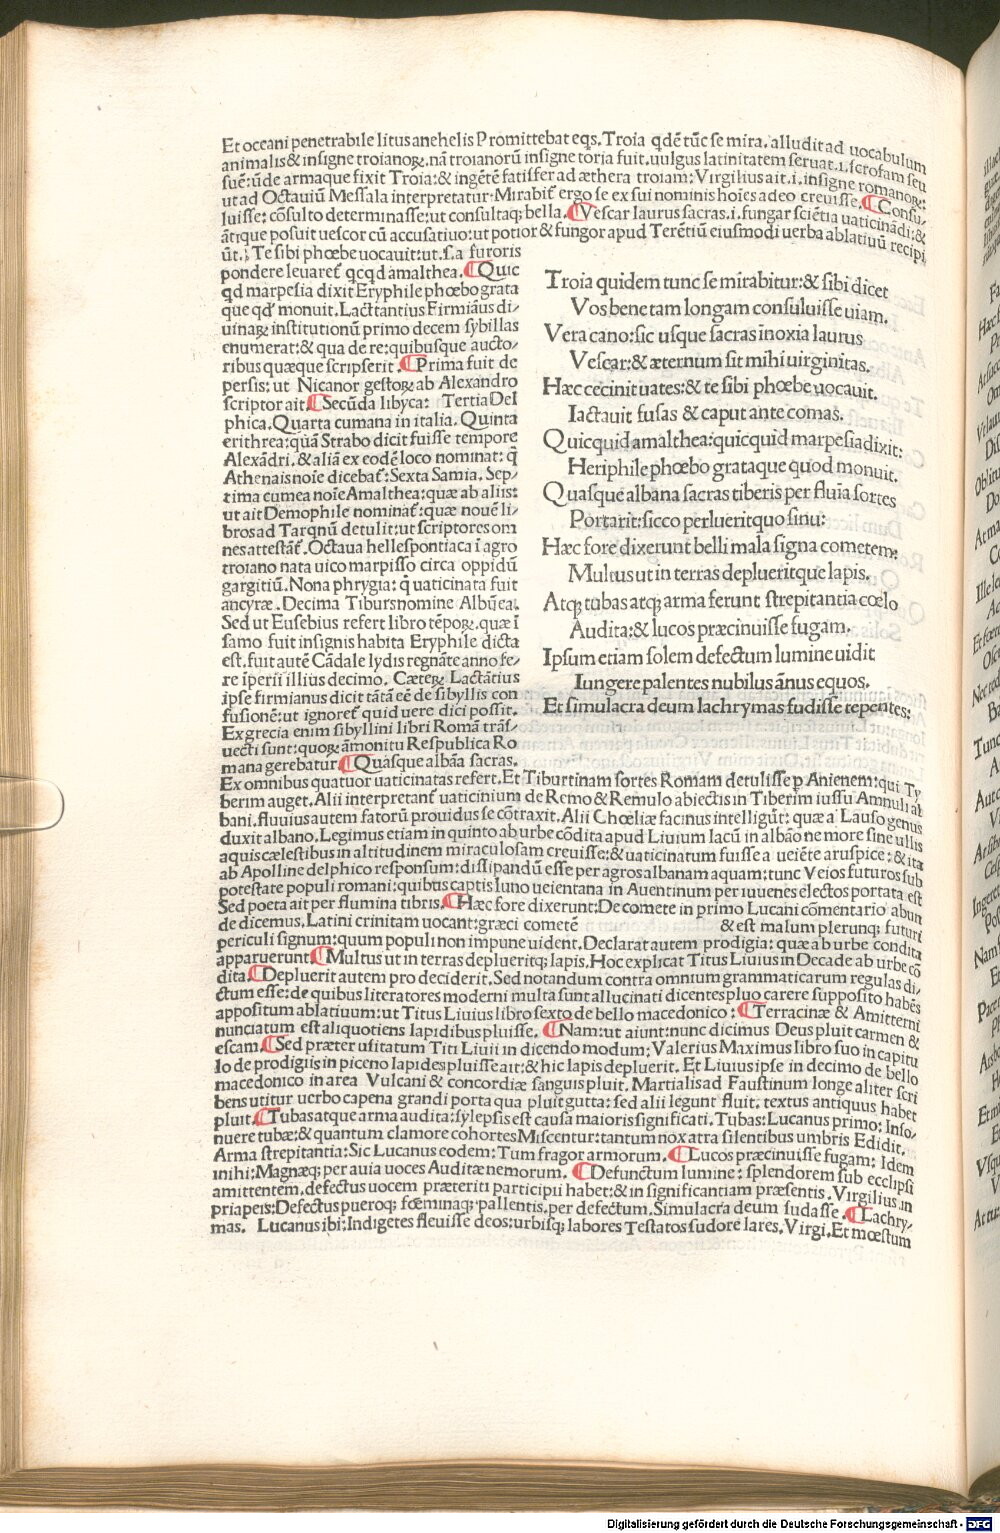 Et oceani penetrabile litus anehelis Promittebat eqs. Troia qdē tūc se mira. alludit ad uocabulum
animalis & insigne troianoꝝ. nā troianorū insigne torja fuit. uulgus latinitatem seruat. i. scrofam seu
suē: ūde armaque fixit Troia: & ingētē fatisfer ad æthera troiam: Virgilius ait. i. insigne romanoꝝ:
ut ad Octauiū Messala interpretatur. Mirabit᷑ ergo se ex sui nominis hoīes adeo creuisse. ¶ Consu/
luisse: cōsulto determinasse: ut consultaqꝫ bella. ¶ Vescar laurus sacras. i. fungar sciētia uaticinādi: &
ātique posuit uescor cū accusatiuo: ut potior & fungor apud Terētiū eiusmodi uerba ablatiuū recipi
ūt. Te sibi phœbe uocauit: ut. s. a furoris
pondere leuaret᷑ qcqd amalthea. ¶ Quic
qd marpesia dixit Eryphile phœbo grata
que qd' monuit. Lactitantius Firmiāus di/
uinaꝝ institutionū primo decem sybillas
enumerat: & qua de re: quibusque aucto/
ribus quæque scripserit. ¶ Prima fuit de
persis: ut Nicanor gestoꝝ ab Alexandro
scriptor ait. ¶ Secūda libyca: Tertia Del
phica. Quarta cumana in italia. Quinta
erithrea: quā Strabo dicit fuisse tempore
Alexādri. & aliā ex eodē loco nominat: q̄
Athenais noīe dicebat᷑: Sexta Samia. Sep/
tima cumea noīe Amalthea: quæ ab aliis:
ut ait Demophile nominat᷑: quæ nouē li/
bros ad Tarqnū detulit: ut scriptores om
nes attestāt᷑. Octaua hellespontiaca ī agro
troiano nata uico marpisso circa oppidū
gargitiū. Nona phrygia: q̄ uaticinata fuit
ancyræ. Decima Tiburs nomine Albūea.
Sed ut Eusebius refert libro tēpoꝝ. quæ ī
samo fuit insignis habita Eryphile dicta
est. fuit autē Cādale lydis regnāte anno fe/
re īperii illius decimo. Cæteꝝ Lactātius
ipse firmianus dicit tātā eē de sibyllis con
fusionē: ut ignoret᷑ quid uere dici possit.
Ex grecia enim sibyllini libri Romā trās/
uecti sunt: quoꝝ āmonitu Respublica Ro
mana gerebatur. ¶ Quasque albāa sacras.
Troia quidem tunc se mirabitur: & sibi dicet
Vos bene tam longam consuluisse uiam.
Vera cano: sic usque sacras īnoxia laurus
Vescar: & æternum sit mihi uirginitas.
Hæc cecinit uates: & te sibi phœbe uocauit.
Iactauit fusas & caput ante comas.
Quicquid amalthea: quicquid marpesia dixit:
Heriphile phœbo grataque quod monuit.
Quasque albana sacras tiberis per fluīa sortes
Portarit: sicco perlueritquo sinu:
Hæc fore dixerunt belli mala signa cometem:
Multus ut in terras deplueritque lapis.
Atqꝫ tubas atqꝫ arma ferunt strepitantia cœlo
Audita: & lucos præcinuisse fugam.
Ipsum etiam solem defectum lumine uidit
Iungere palentes nubilus ānus equos.
Et simulacra deum lachrymas fudisse tepentes:
Ex omnibus quatuor uaticinatas refert. Et Tiburtinam sortes Romam detulisse ꝑ Anienem: qui Ty
berim auget. Alii interpretant᷑ uaticinium de Remo & Remulo abiectis in Tiberim iussu Amnuli ab
bani. fluuius autem fatorū prouidus se cōtraxit. Alii Chœliæ facinus intelligūt: quæ a Lauso genus
duxit albano. Legimus etiam in quinto ab urbe cōdita apud Liuium lacū in albāo nemore sine ullis
aquis cælestibus in altitudinem miraculosam creuisse: & uaticinatum fuisse a ueiēte aruspice: & ita
ab Apolline delphico responsum: dissipandū esse per agros albanam aquam: tunc Veios futuros sub
potestate populi romani: quibus captis Iuno ueientana in Auentinum per iuuenes electos portata est
Sed poeta ait per flumina tibris. ¶ Hæc fore dixerunt: De comete in primo Lucani cōmentario abun
de dicemus. Latini crinitam uocant: græci cometē & est malum plerunqꝫ futuri
periculi signum: quum populi non impune uident. Declarat autem prodigia: quæ ab urbe condita
apparuerunt. ¶ Multus ut in terras deplueritqꝫ lapis. Hoc explicat Titus Liuius in Decade ab urbe cō
dita. ¶ Depluerit autem pro deciderit. Sed notandum contra omnium grammaticarum regulas di/
ctum esse: de quibus literatores moderni multa sunt allucinati dicentes pluo carere supposito habēs
appositum ablatiuum: ut Titus Liuius libro sexto de bello macedonico: ¶ Terracinæ & Amitterni
nunciatum est aliquotiens lapidibus pluisse. ¶ Nam: ut aiunt: nunc dicimus Deus pluit carmen &
escam. ¶ Sed præter usitatum Titi Liuii in dicendo modum: Valerius Maximus libro suo in capitu
lo de prodigiis in piceno lapides pluisse ait: & hic lapis depluerit. Et Liuius ipse in decimo de bello
macedonico in area Vulcani & concordiæ sanguis pluit. Martialis ad Faustinum longe aliter scri
bens utitur uerbo capena grandi porta qua pluit gutta: sed alii legunt fluit. textus antiquus habet
pluit. ¶ Tubas atque arma audita: sylepsis est causa maioris significati. Tubas: Lucanus primo: Inso/
nuere tubæ: & quantum clamore cohortes Miscentur: tantum nox atra silentibus umbris Edidit.
Arma strepitantia: Sic Lucanus eodem: Tum fragor armorum. ¶ Lucos præcinuisse fugam: Idem
inihi: Magnæqꝫ per auia uoces Auditæ nemorum. ¶ Defunctum lumine: splendorem sub ecclipsi
amittentem. defectus uocem præteriti participii habet: & in significantiam præsentis. Virgilius in
priapeis: Defectus pueroqꝫ fœminaqꝫ pallentis. per defectum. Simulacra deum sudasse. ¶ Lachry/
mas. Lucanus ibi: Indigetes fleuisse deos: urbisqꝫ labores Testatos sudore lares. Virgi. Et mœstum
Digitalisierung gefördert durch die Deutsche Forschungsgemeinschaft - DFG